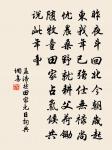 昨夜斗回北今朝歲起
東我年已強仕無祿尚
憂農桑野就耕父荷鋤
隨牧童田家占氣候共
說此年豐
孟浩然田家元日